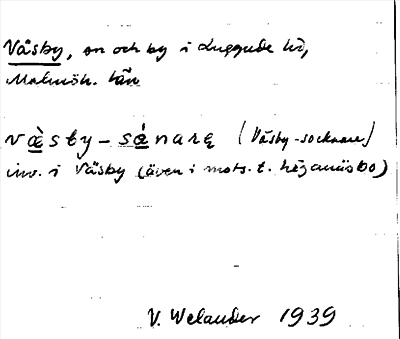 Väsby, sn och by i Luggude hd,
Malmöh. län
væ̀sby-sǽnarę (Väsby-socknare)
inv. i Väsby (även i mots. t.
V. Welander 1939